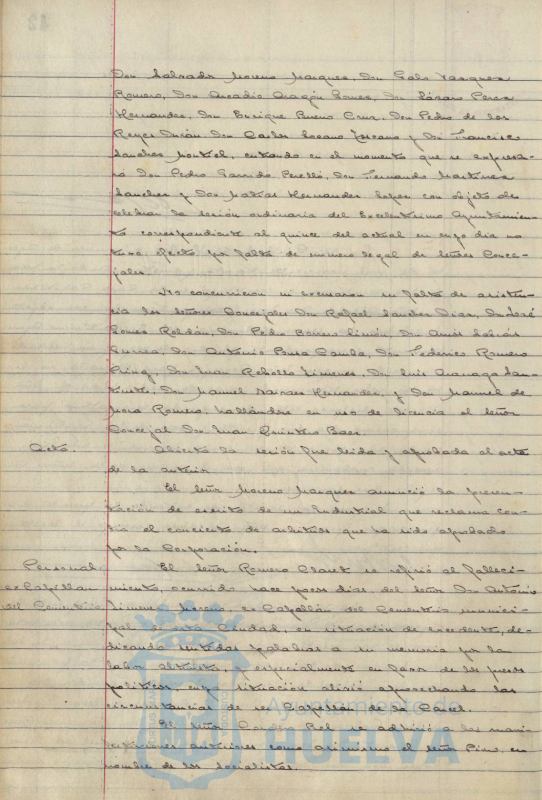 Don Salvador Moreno Marquez, Don Galo Vazquez
Romero, Don Arcadio Aragón Gomez, Don Lázaro Perez
Hernandez, Don Enrique Bueno Cruz, Don Pedro de los
Reyes Durán Don Carlos Lozano Toscano y Dn Francisco
Sanchez Montiel, entrando en el momento que se expresa-
rá Don Pedro Garrido Perelló, Don Fernando Martinez
Sanchez y Don Matias Hernandez Lopez con objeto de
celebrar la sesión ordinaria del Excelentisimo Ayuntamien-
to correspondiente al quince del actual en cuyo dia no
tuvo efecto por falta de numero legal de señores Conce-
jales.
No concurrieron ni excusaron su falta de asisten-
cia los señores Concejales Don Rafael Sanchez Diaz, Don José
Gomez Roldán, Don Pedro Borrero Limón, Don Amós Sabrás
Gurrea, Don Antonio Ponsa Camba, Don Federico Romero
Don Juan Rebollo Jimenez, Don Luis
Don Manuel Narvaez Hernandez, y Don Manuel de
Mora Romero, hallándose en uso de licencia el señor
Concejal Don Juan Quintero Baez.
Acta. Abierta la sesión fue leida y aprobada el acta
de la anterior
El señor Moreno Marquez anunció la presen-
tación de escrito de un Industrial que reclama con-
tra el concierto de arbitrios que ha sido aprobado
por la Corporación.
Personal: El señor Romero Claret se refirió al falleci-
ex Capellan miento, ocurrido hace pocos dias, del señor Don Antonio
del Cementerio Jimenez Moreno, ex Capellán del Cementerio munici-
pal de esta Ciudad, en situación de excedente, de-
dicando sentidas palabras a su memoria por la
labor altruista, y especialmente en favor de los presos
politicos cuya situación alivió aprovechando las
circunstancias de ser Capellán de la Carcel.
El señor Cordero Bel se adhirió a las mani-
festaciones anteriores como asimismo el señor Pino, en
nombre de los socialistas.
Ayuntamiento de
HUELVA